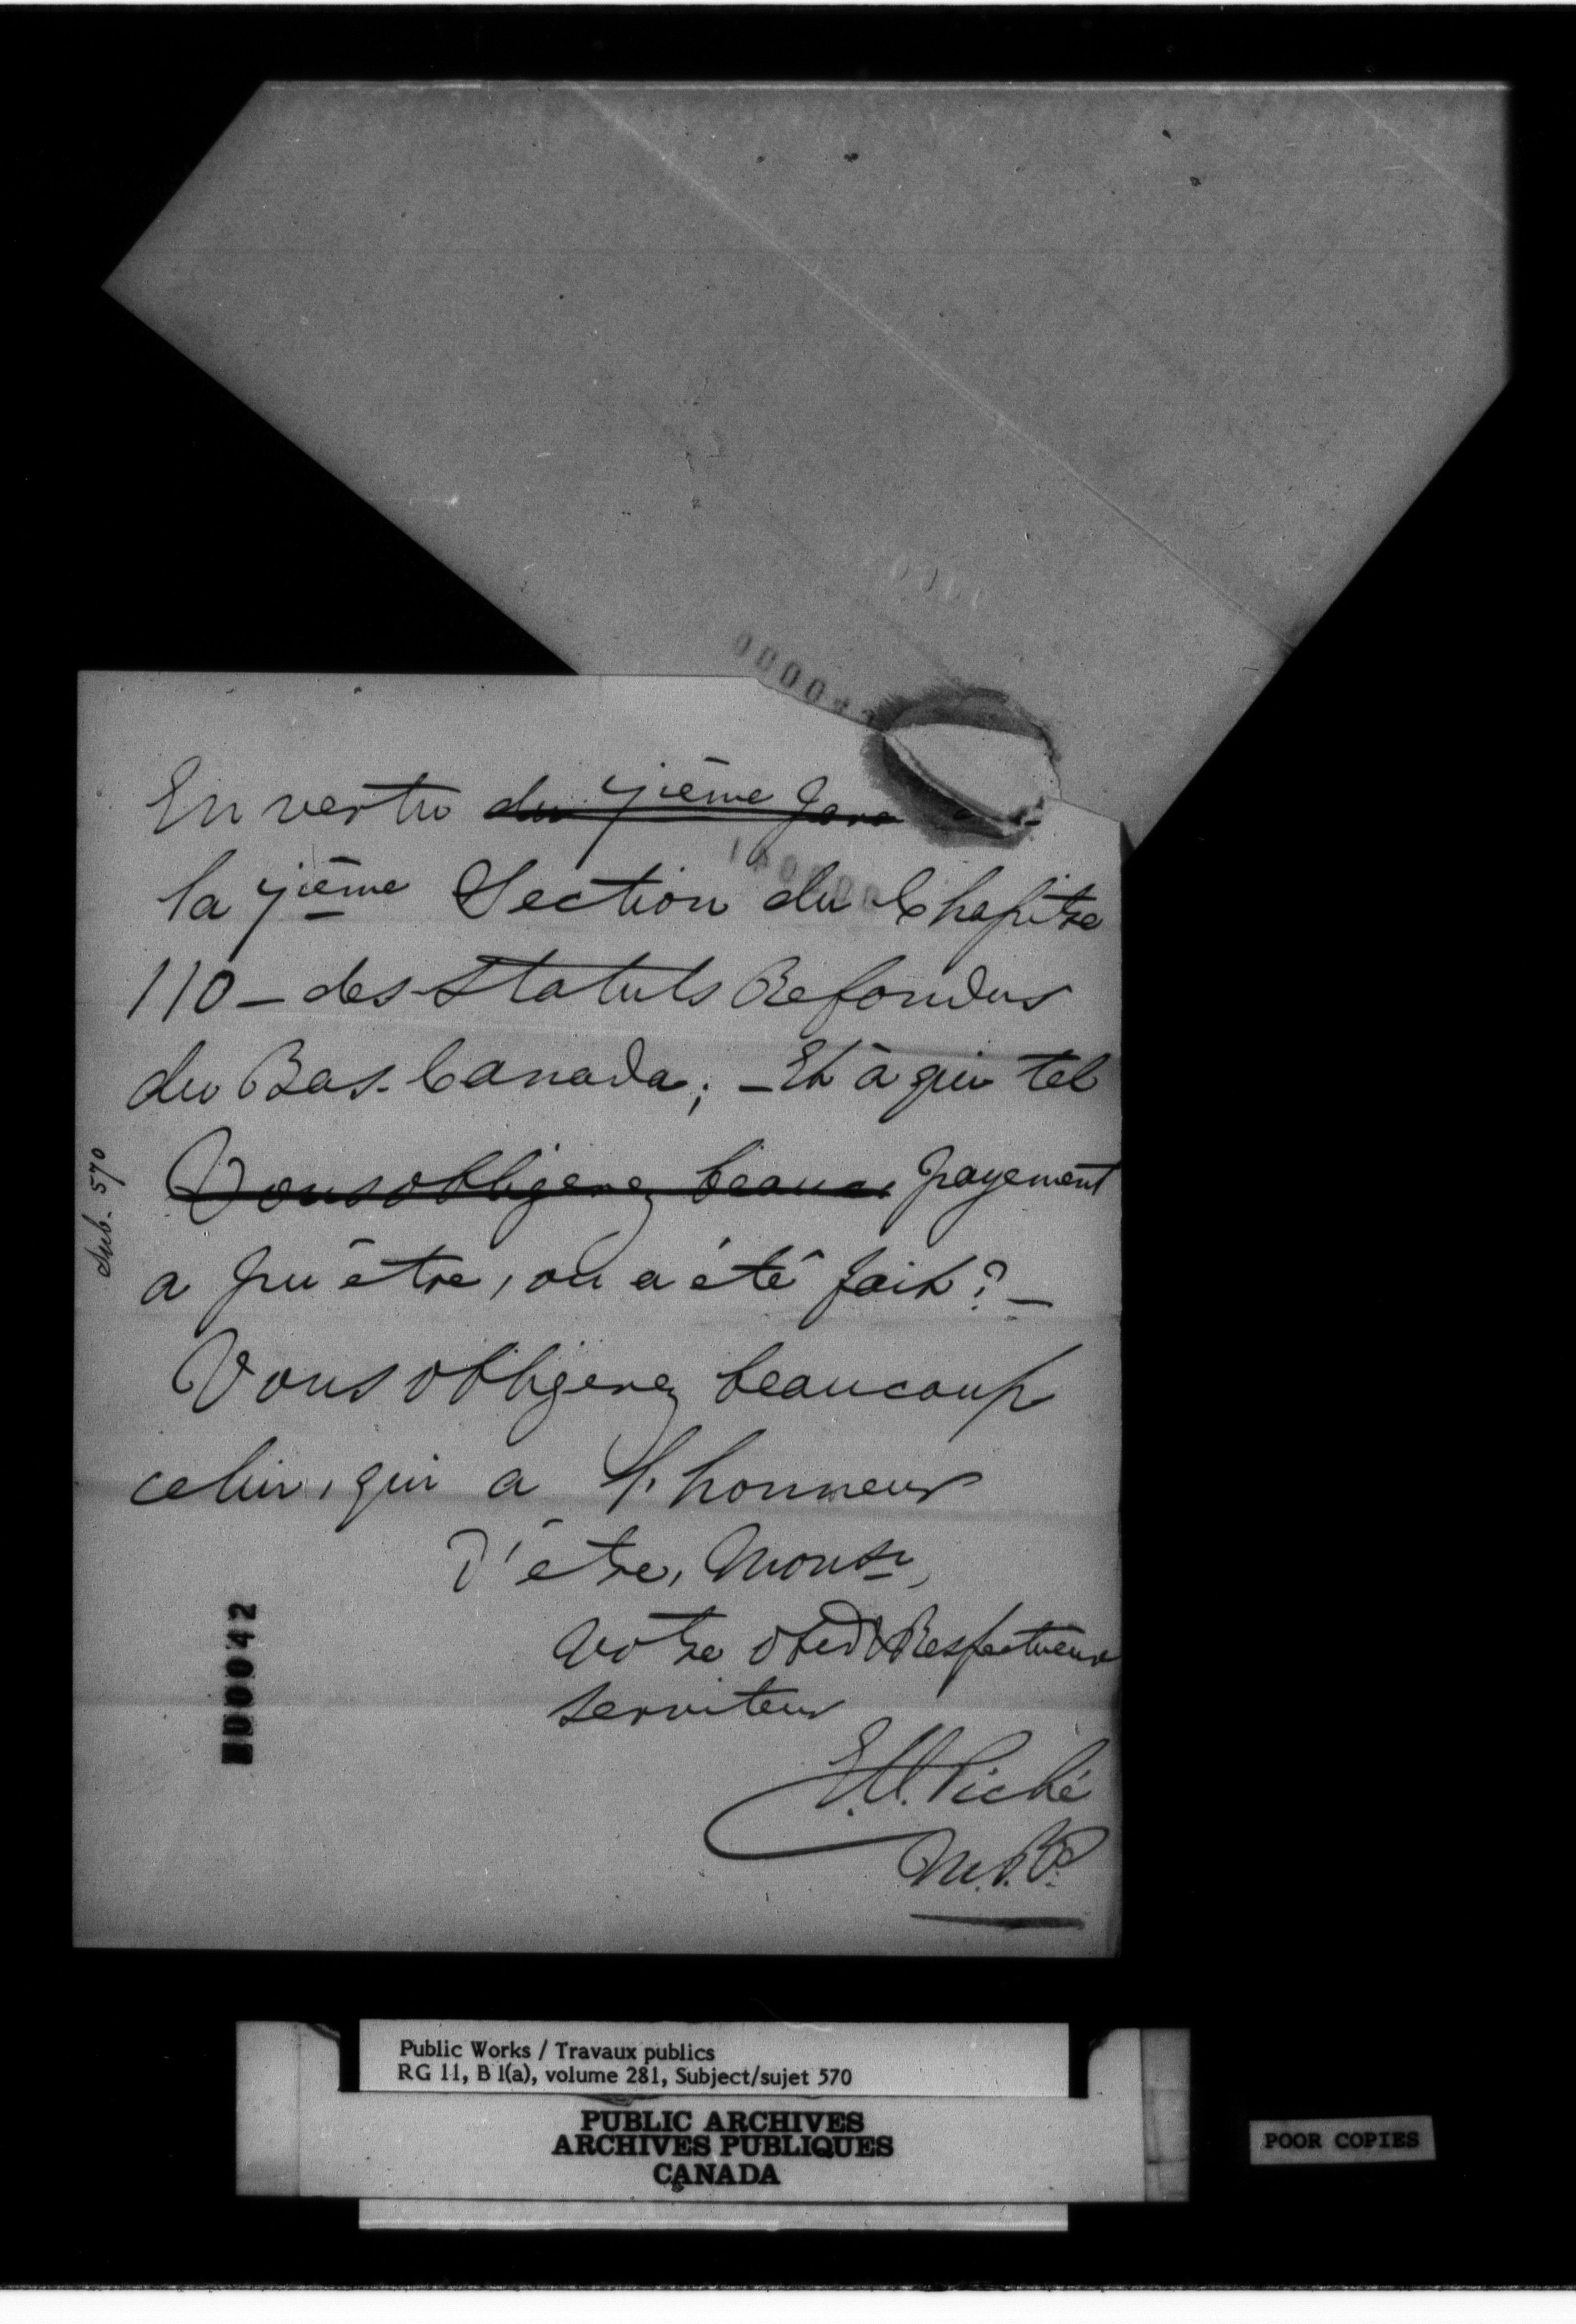 En vertu du 7ième Para
la 7ième Section du Chapitre
110 - des Statuts Refondus
du Bas-Canada; - Et à qui tel
Vous obligerez beauc payement
a pu être, ou a été fait? -
Vous obligerez beaucoup
celui, qui a l'honneur
D'être, Monsr,
Votre obedt & Respectueux
serviteur
E.U. Piché
M.P.P.
Sub. 570
000042
Public Works / Travaux publics
RG 11, B 1(a), volume 281, Subject/sujet 570
PUBLIC ARCHIVES
ARCHIVES PUBLIQUES
CANADA
POOR COPIES